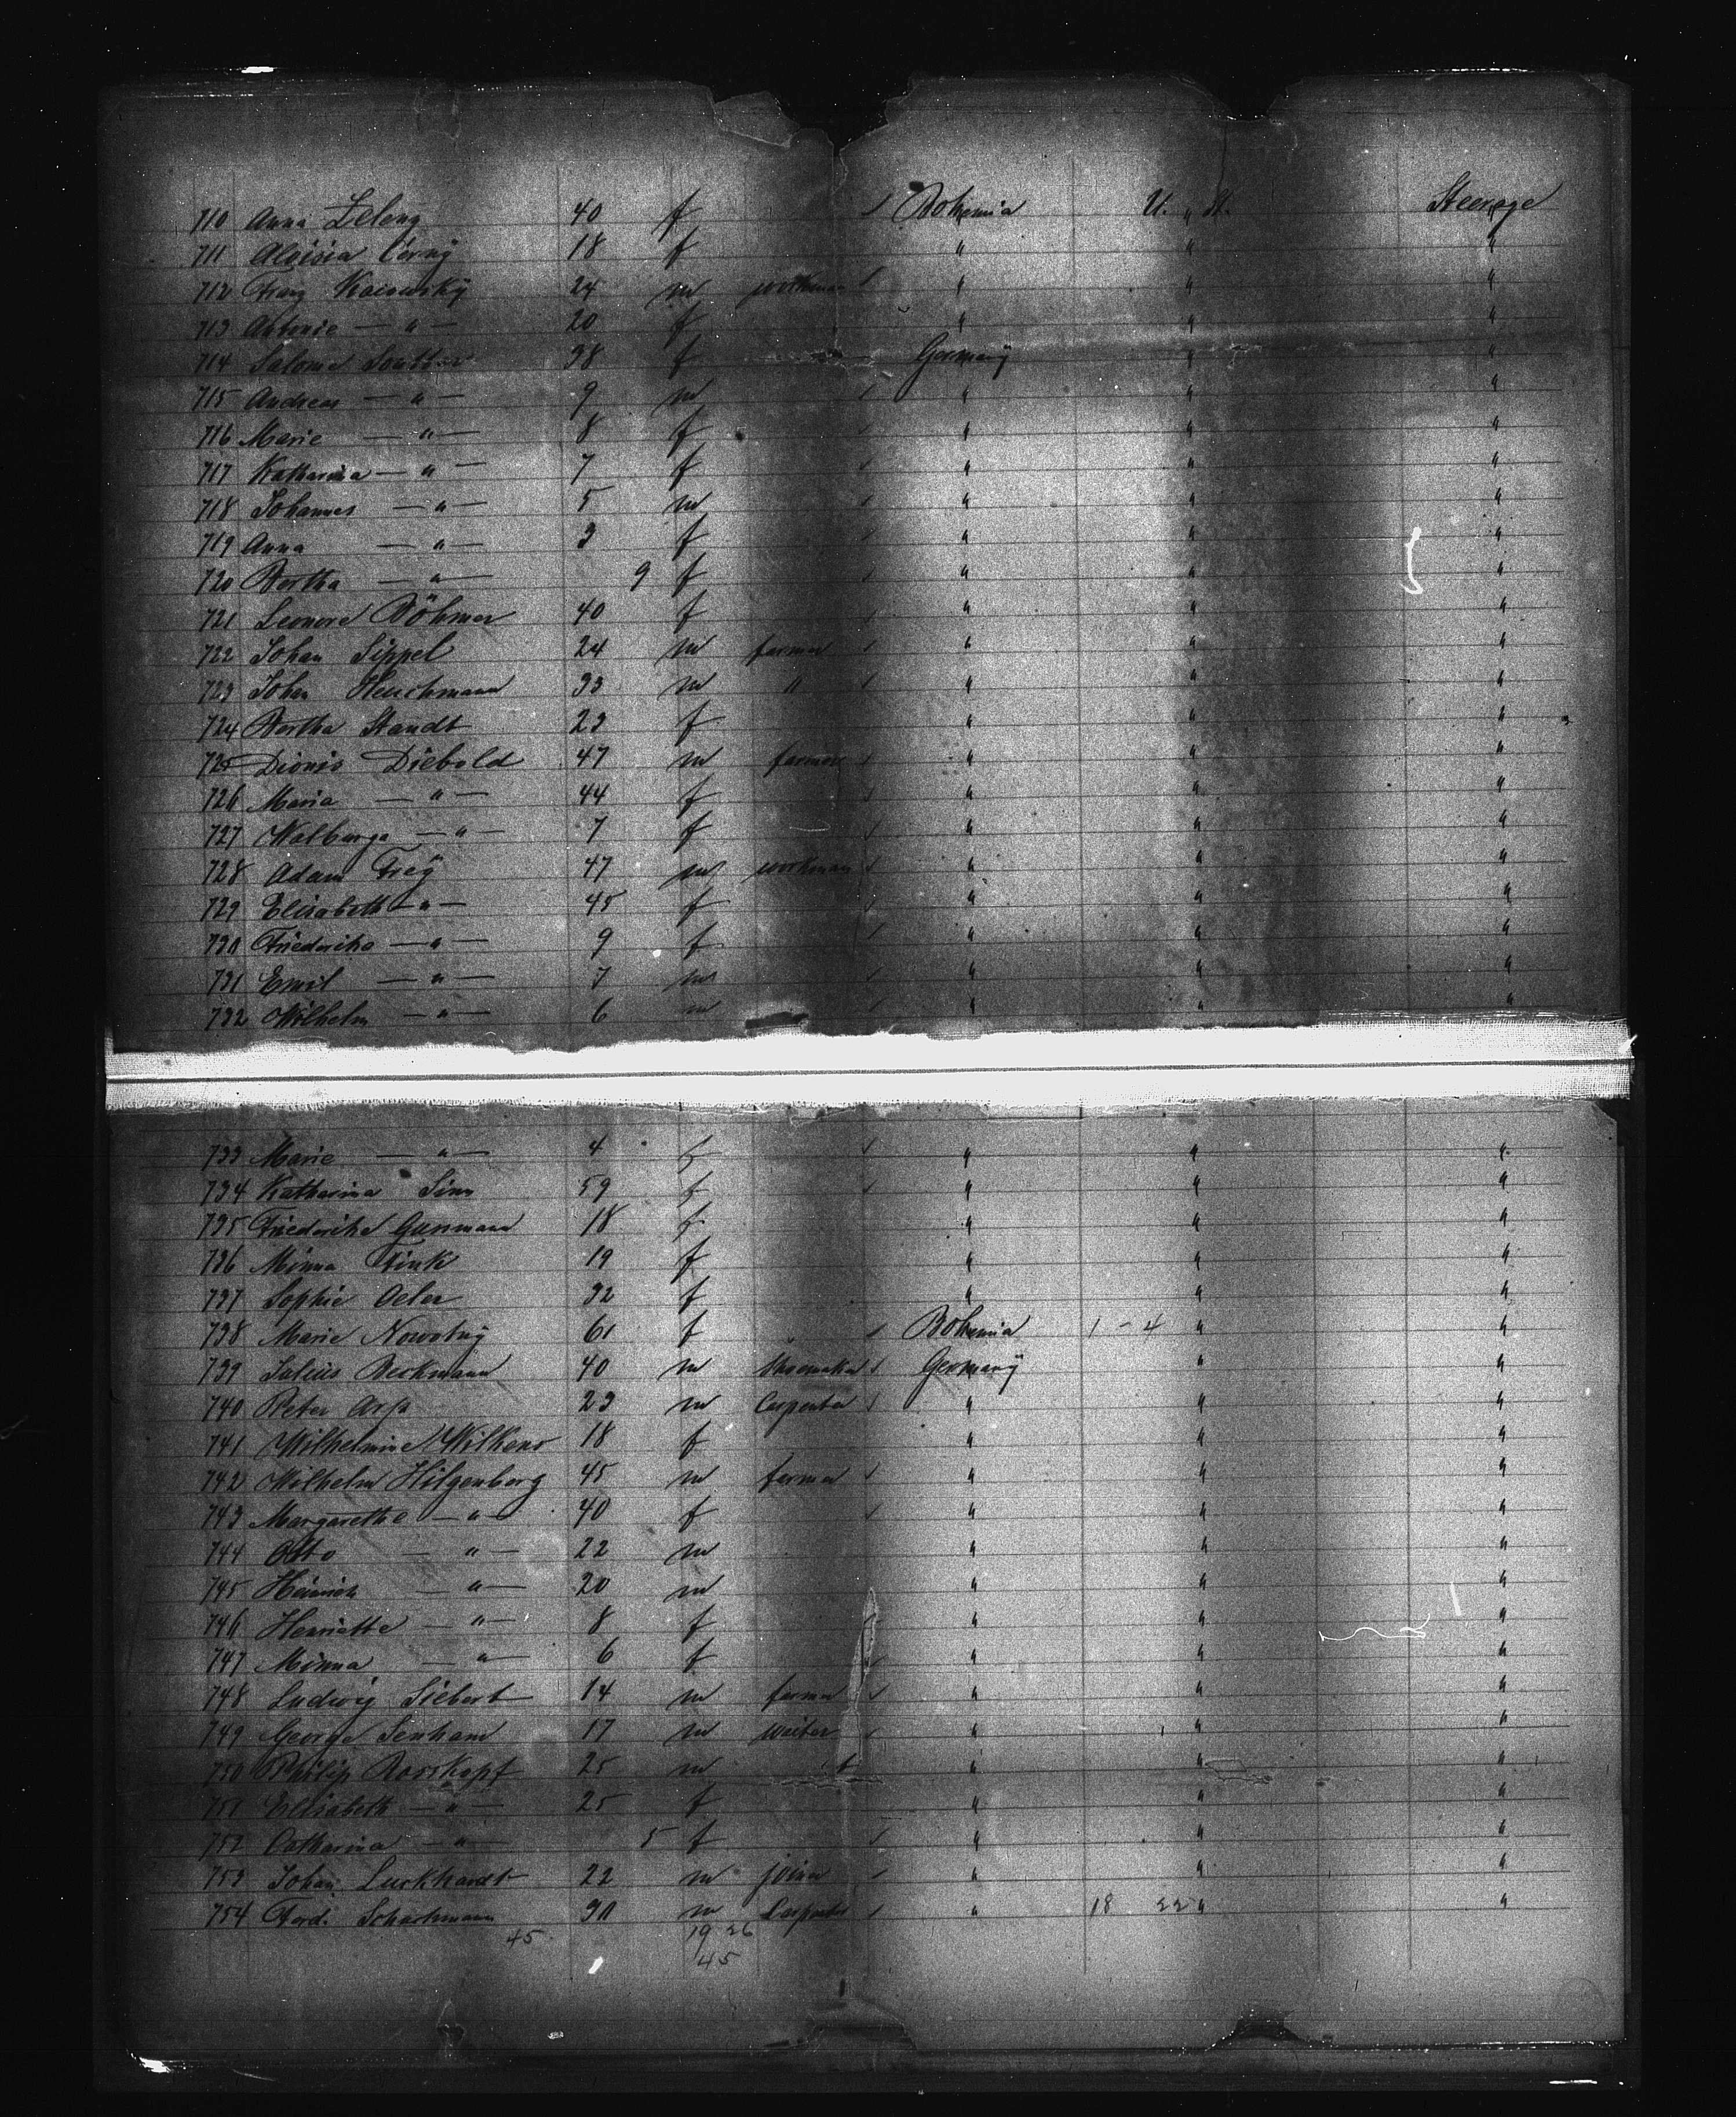 710 Anna Zeleny 40 f Bohemia U. St. Steerage
711 Aloisia Cérny 18 f " " "
712 Franz 24 m workman " " "
713 Antonie — " — 20 f " " "
714 Salome 38 f Germany " "
715 Andreas — " — 9 m " " "
716 Marie — " — 8 f " " "
717 Katharina — " — 7 f " " "
718 Johannes — " — 5 m " " "
719 Anna — " — 3 f " " "
720 Bertha — " — 9 f " " "
721 Leonore Böhmer 40 f " " "
722 Johan Sippel 24 m farmer " " "
723 Johan Heuchmann 33 m " " " "
724 Bertha Staudt 23 f " " "
725 Dionis Diebold 47 m farmer " " "
726 Maria — " — 44 f " " "
727 Walburga — " — 7 f " " "
728 Adam Frey 47 m workman " " "
729 Elisabeth — " — 45 f " " "
730 Friederike — " — 9 f " " "
731 Emil — " — 7 m " " "
732 Wilhelm — " — 6 m " " "
733 Marie — " — 4 f " " "
734 Katharina Sinn 59 f " " "
735 Friederike Gunmann 18 f " " "
736 Minna Fink 19 f " " "
737 Sophie Oeler 32 f " " "
738 Marie Nowotny 61 f Bohemia 1 - 4 " "
739 Julius Beckmann 40 m Shoemaker Germany " "
740 Peter Arp 23 m Carpenter " " "
741 Wilhelmine Wilkens 18 f " " "
742 Wilhelm Hilgenberg 45 m farmer " " "
743 Margarethe — " — 40 f " " "
744 Otto — " — 22 m " " "
745 Heinrich — " — 20 m " " "
746 Henriette — " — 8 f " " "
747 Minna — " — 6 f " " "
748 Ludwig Siebert 14 m farmer " " "
749 George Senham 17 m waiter " " "
750 Philip Rosskopf 25 m " " "
751 Elisabeth — " — 25 f " " "
752 Catharina — " — 5 f " " "
753 Johan Luckhardt 22 m joiner " " "
754 Ferd. Schachmann 30 m Carpenter " 18 22 " "
45 19 26
45